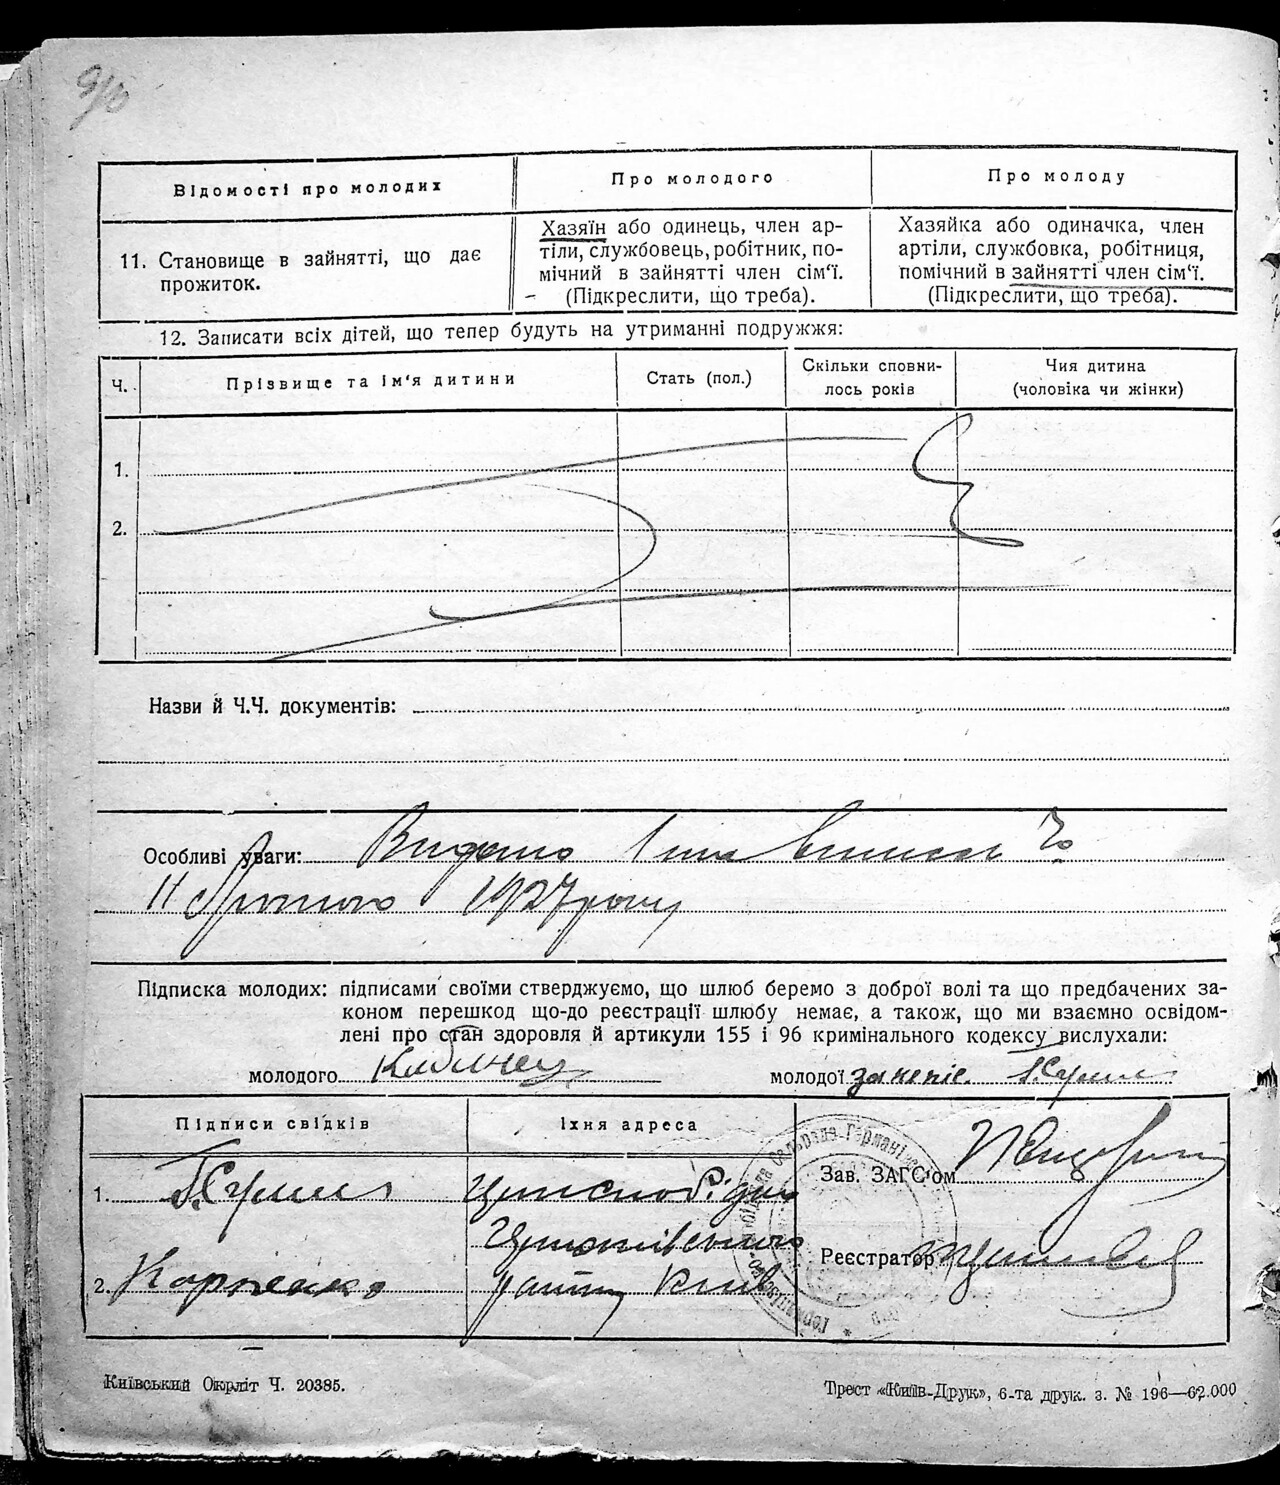 Відомості про молодих
Про молодого
Про молоду
11. Становище в зайнятті, що дає
прожиток.
Хазяїн або одинець, член ар-
тіли, службовець, робітник, по-
мічний в зайнятті член сім'ї.
(Підкреслити, що треба).
Хазяйка або одиначка, член
артіли, службовка, робітниця,
помічний в зайнятті член сім'ї.
(Підкреслити, що треба).
12. Записати всіх дітей, що тепер будуть на утриманні подружжя:
Ч.
Прізвище та ім'я дитини
Стать (пол.)
Скільки сповни-
лось років
Чия дитина
(чоловіка чи жінки)
1.
2.
Назви й Ч.Ч. документів:
Особливі уваги: Видано
11 Лютого 1927 року
Підписка молодих: підписами своїми стверджуємо, що шлюб беремо з доброї волі та що предбачених за-
коном перешкод що-до реєстрації шлюбу немає, а також, що ми взаємно освідом-
лені про стан здоровля й артикули 155 і 96 кримінального кодексу вислухали:
молодого
молодої
Підписи свідків
Їхня адреса
1.
2. Карпенко
Зав. ЗАГС'ом
Реєстратор
Київський Окрліт Ч. 20385.
Трест «Київ-Друк», 6-та друк. з. № 196—62.000